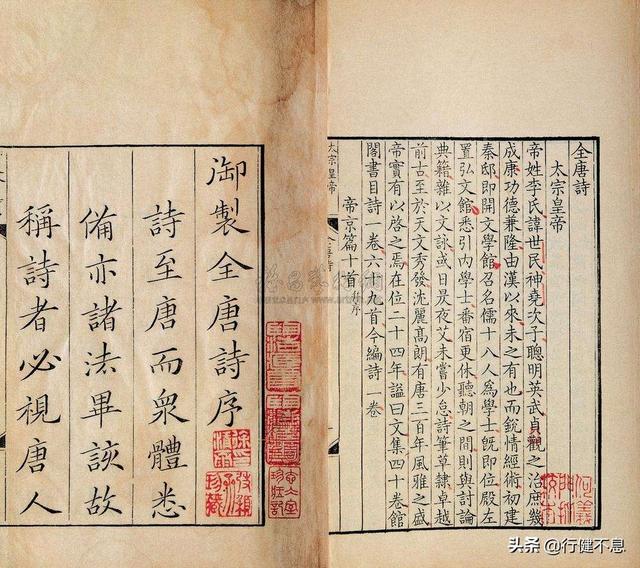 全唐詩
太宗皇帝
帝姓李氏諱世民神堯次子聰明英武貞觀之治庶幾
成康功德兼隆由漢以來未之有也而銳情經術初建
秦邸即開文學館召名儒十八人為學士既即位殿左
置弘文館悉引內學士番宿更休聽朝之間則與討論
典籍雜以文詠或日昃夜艾未嘗少怠詩筆草隸卓越
前古至於天文秀發沈麗高朗有唐三百年風雅之盛
帝實有以啓之焉在位二十四年諡曰文集四十卷館
閣書目詩一卷六十九首今編詩 卷
帝京篇十首 序
太宗皇帝 全唐詩
御製全唐詩序
詩至唐而衆體悉
備亦諸法畢該故
稱詩者必視唐人
头条 @行健不息